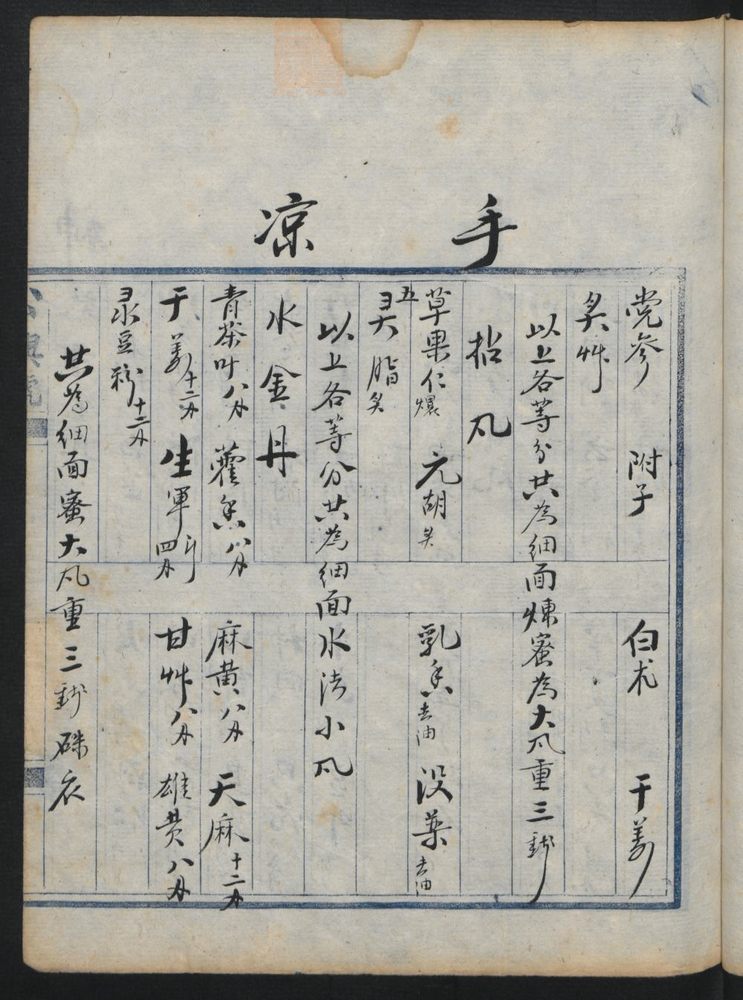 手凉
党参 附子 白术 干姜
炙艸
以上各等分共為細面煉蜜為大凡重三錢
拈凡
草果仁煨 元胡炙 乳香去油 没藥去油
五灵脂炙
以上各等分共為細面水法小凡
水金丹
青茶叶八分 藿香八分 麻黄八分 天麻十二分
干姜十二分 生軍 甘艸八分 雄黄八分
彔豆粉十二分
共為細面蜜大凡重三錢硃衣